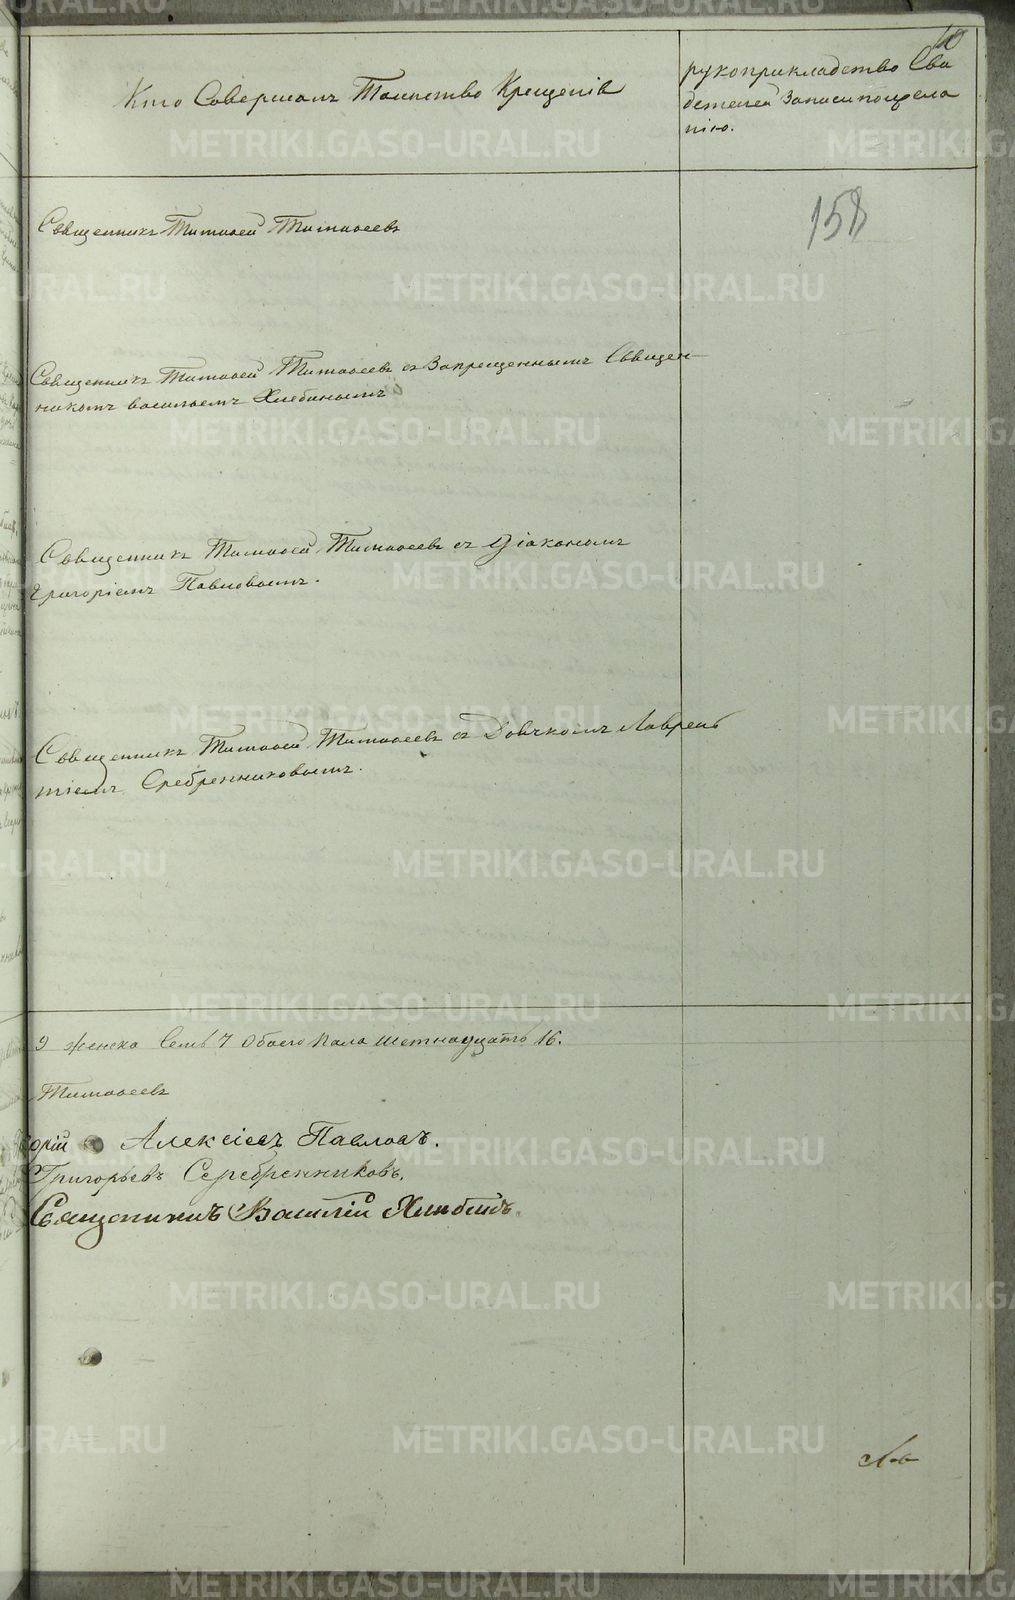 10
Кто Совершалъ Таинство Крещенія
рукоприкладство Сви
детелей Записи пожела
нію.
158
Священникъ Тимофей Тимофеевъ
Священникъ Тимофей Тимофеевъ съ Запрещеннымъ Священ-
никомъ васильемъ Хлебинымъ
Священникъ Тимофей Тимофеевъ съ Діакономъ
Григоріемъ Павловымъ.
Священникъ Тимофей Тимофеевъ съ Дьячкомъ Лаврень
тіемъ Сребренниковымъ.
9 женска Семь 7 Обоего Пола шестнадцать 16.
Тимофеевъ
орій Алексѣевъ Павловъ.
Григорьевъ Серебренниковъ.
Священникъ Василій Хлѣбинъ.
METRIKI.GASO-URAL.RU